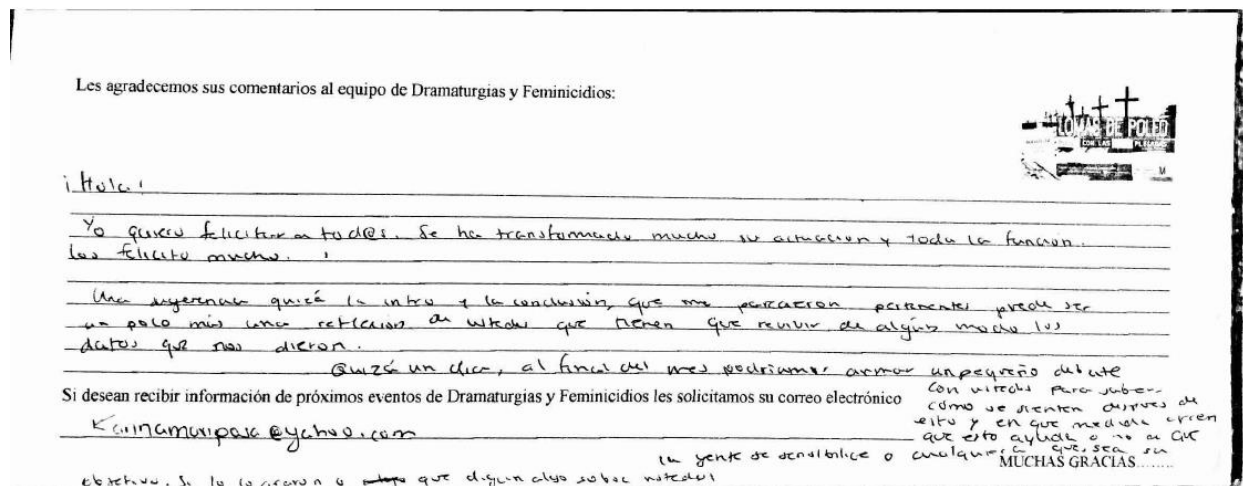 Les agradecemos sus comentarios al equipo de Dramaturgias y Feminicidios:
LOMAS DE POLEO
CON LAS PLEGADAS
¡Hola!
Yo quiero felicitar a tod@s. Se ha transformado mucho su actuación y toda la función.
los felicito mucho.
Una sugerencia quizá la intro y la conclusión, que me parecieron pertinentes puede ser
un poco más una reflexión de ustedes que tienen que revivir de algún modo los
datos que nos dieron.
Quizá un día, al final del mes podríamos armar un pequeño debate
con ustedes para saber
cómo se sienten después de
esto y en qué medida creen
que esto ayuda o no a que
la gente se sensibilice o cualquiera que sea su
objetivo. Si lo lograron o que digan algo sobre ustedes!
Si desean recibir información de próximos eventos de Dramaturgias y Feminicidios les solicitamos su correo electrónico
Karinamariposa@yahoo.com
MUCHAS GRACIAS........